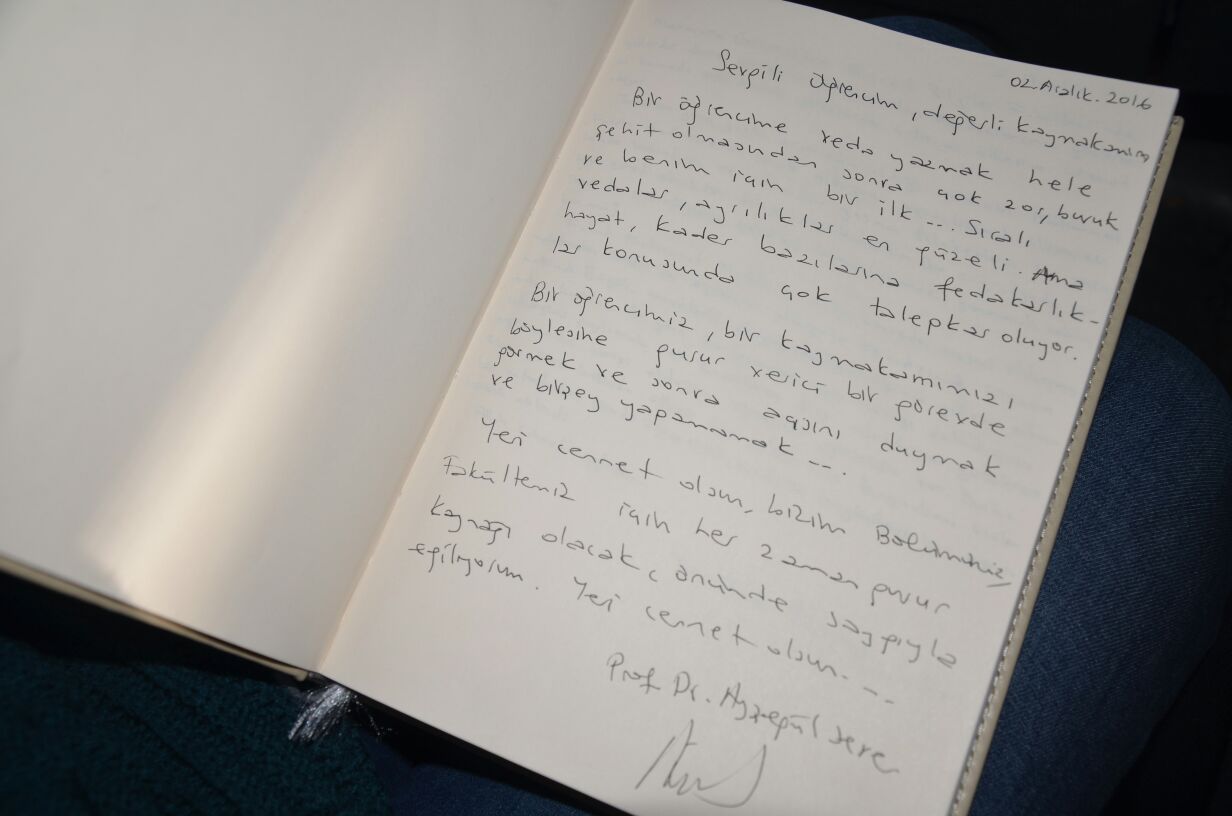 02.Aralık.2016
Sevgili öğrencim, değerli kaymakamım,
Bir öğrencime veda yazmak hele
şehit olmasından sonra çok zor, buruk
ve benim için bir ilk... Sıcak
vedalar, ayrılıklar en güzeli. Ama
hayat, kader bazılarına fedakarlık-
lar konusunda çok talepkar oluyor.
Bir öğrencimiz, bir kaymakamımızı
böylesine gurur verici bir görevde
görmek ve sonra acısını duymak
ve birşey yapamamak...
Yeri cennet olsun, bizim Bölümümüz,
Fakültemiz için her zaman gurur
kaynağı olacak, önünde saygıyla
eğiliyorum. Yeri cennet olsun...
Prof Dr. Ayşegül